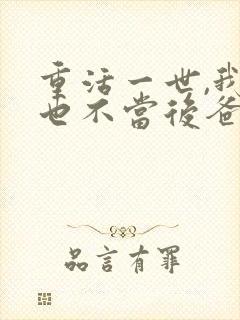 重活一世,我
也不當後爸
品言有罪